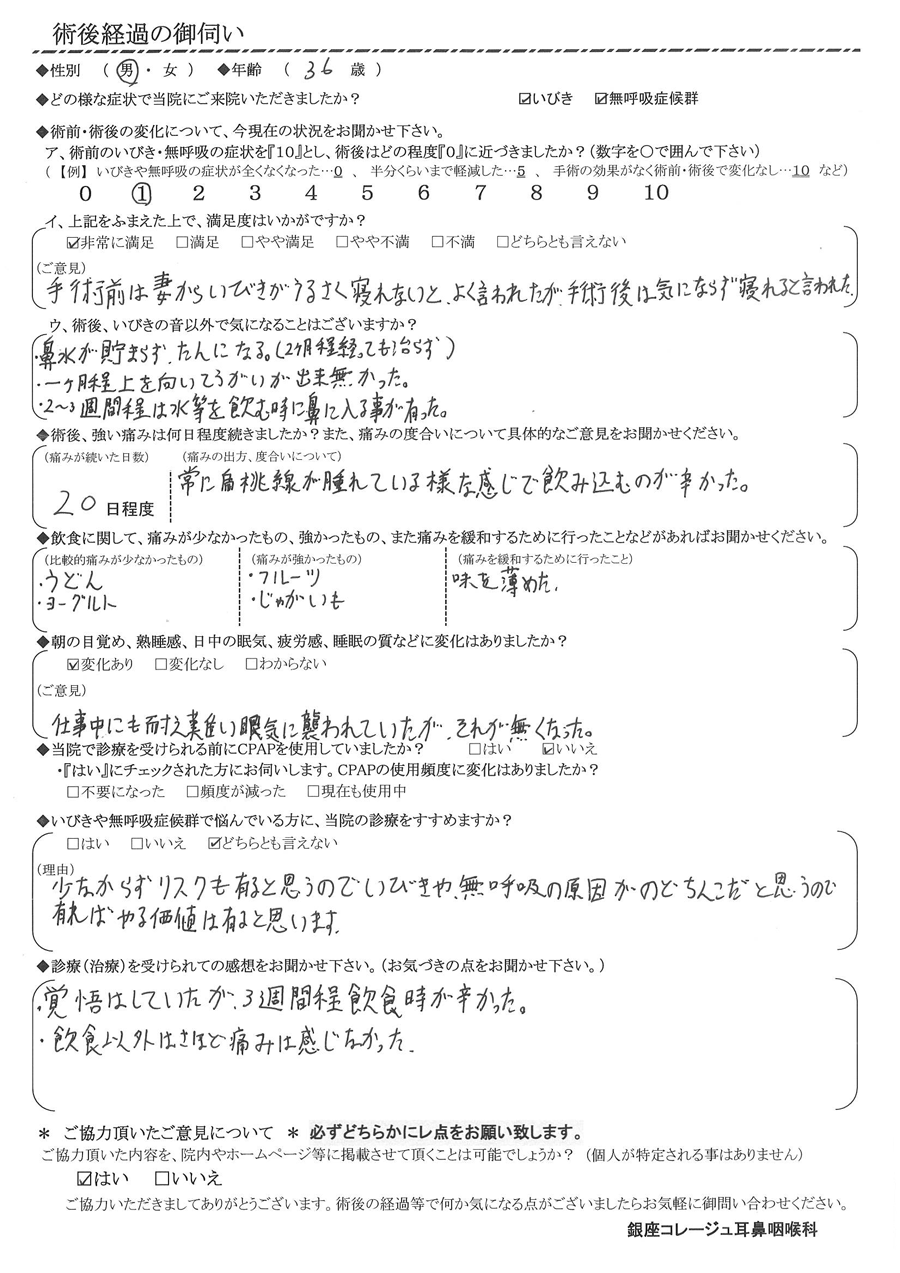 術後経過の御伺い
◆性別 ( 男 ・ 女 ) ◆年齢 ( 36 歳 )
◆どの様な症状で当院にご来院いただきましたか? ☑いびき ☑無呼吸症候群
◆術前・術後の変化について、今現在の状況をお聞かせ下さい。
ア、術前のいびき・無呼吸の症状を『10』とし、術後はどの程度『0』に近づきましたか?(数字を〇で囲んで下さい)
(【例】 いびきや無呼吸の症状が全くなくなった…0 、 半分くらいまで軽減した…5 、 手術の効果がなく術前・術後で変化なし…10 など)
0 ① 2 3 4 5 6 7 8 9 10
イ、上記をふまえた上で、満足度はいかがですか?
☑非常に満足 □満足 □やや満足 □やや不満 □不満 □どちらとも言えない
(ご意見)
手術前は妻からいびきがうるさく寝れないと、よく言われたが、手術後は気にならず寝れると言われた。
ウ、術後、いびきの音以外で気になることはございますか?
・鼻水が貯まらず、たんになる。(2ヶ月程経っても治らず)
・一ヶ月程上を向いてうがいが出来無かった。
・2〜3週間程は水等を飲む時に鼻に入る事が有った。
◆術後、強い痛みは何日程度続きましたか?また、痛みの度合いについて具体的なご意見をお聞かせください。
(痛みが続いた日数) (痛みの出方、度合いについて)
常に扁桃線が腫れている様な感じで飲み込むのが辛かった。
20 日程度
◆飲食に関して、痛みが少なかったもの、強かったもの、また痛みを緩和するために行ったことなどがあればお聞かせください。
(比較的痛みが少なかったもの) (痛みが強かったもの) (痛みを緩和するために行ったこと)
・うどん ・フルーツ 味を薄めた。
・ヨーグルト ・じゃがいも
◆朝の目覚め、熟睡感、日中の眠気、疲労感、睡眠の質などに変化はありましたか?
☑変化あり □変化なし □わからない
(ご意見)
仕事中にも耐え難い眠気に襲われていたが、それが無くなった。
◆当院で診療を受けられる前にCPAPを使用していましたか? □はい ☑いいえ
・『はい』にチェックされた方にお伺いします。CPAPの使用頻度に変化はありましたか?
□不要になった □頻度が減った □現在も使用中
◆いびきや無呼吸症候群で悩んでいる方に、当院の診療をすすめますか?
□はい □いいえ ☑どちらとも言えない
(理由)
少なからずリスクも有ると思うのでいびきや、無呼吸の原因がのどちんこだと思うので
有ればやる価値は有ると思います。
◆診療(治療)を受けられての感想をお聞かせ下さい。(お気づきの点をお聞かせ下さい。)
・覚悟はしていたが、3週間程飲食時が辛かった。
・飲食以外はさほど痛みは感じなかった。
* ご協力頂いたご意見について * 必ずどちらかにレ点をお願い致します。
ご協力頂いた内容を、院内やホームページ等に掲載させて頂くことは可能でしょうか? (個人が特定される事はありません)
☑はい □いいえ
ご協力いただきましてありがとうございます。術後の経過等で何か気になる点がございましたらお気軽に御問い合わせください。
銀座コレージュ耳鼻咽喉科